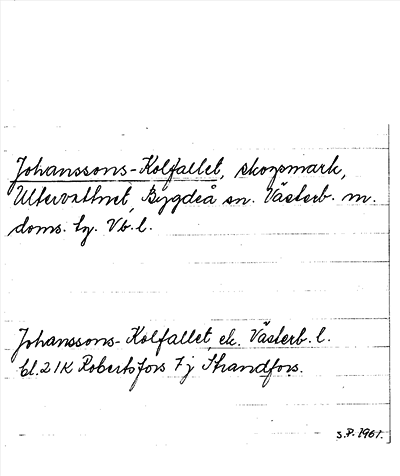 Johanssons-Kolfallet, skogsmark,
Ultervattnet, Bygdeå sn. Västerb. m.
doms. tg. Vb. l.
Johanssons-Kolfallet ek. Västerb. l.
bl. 21K Robertsfors 7j Strandfors.
S.P. 1961.